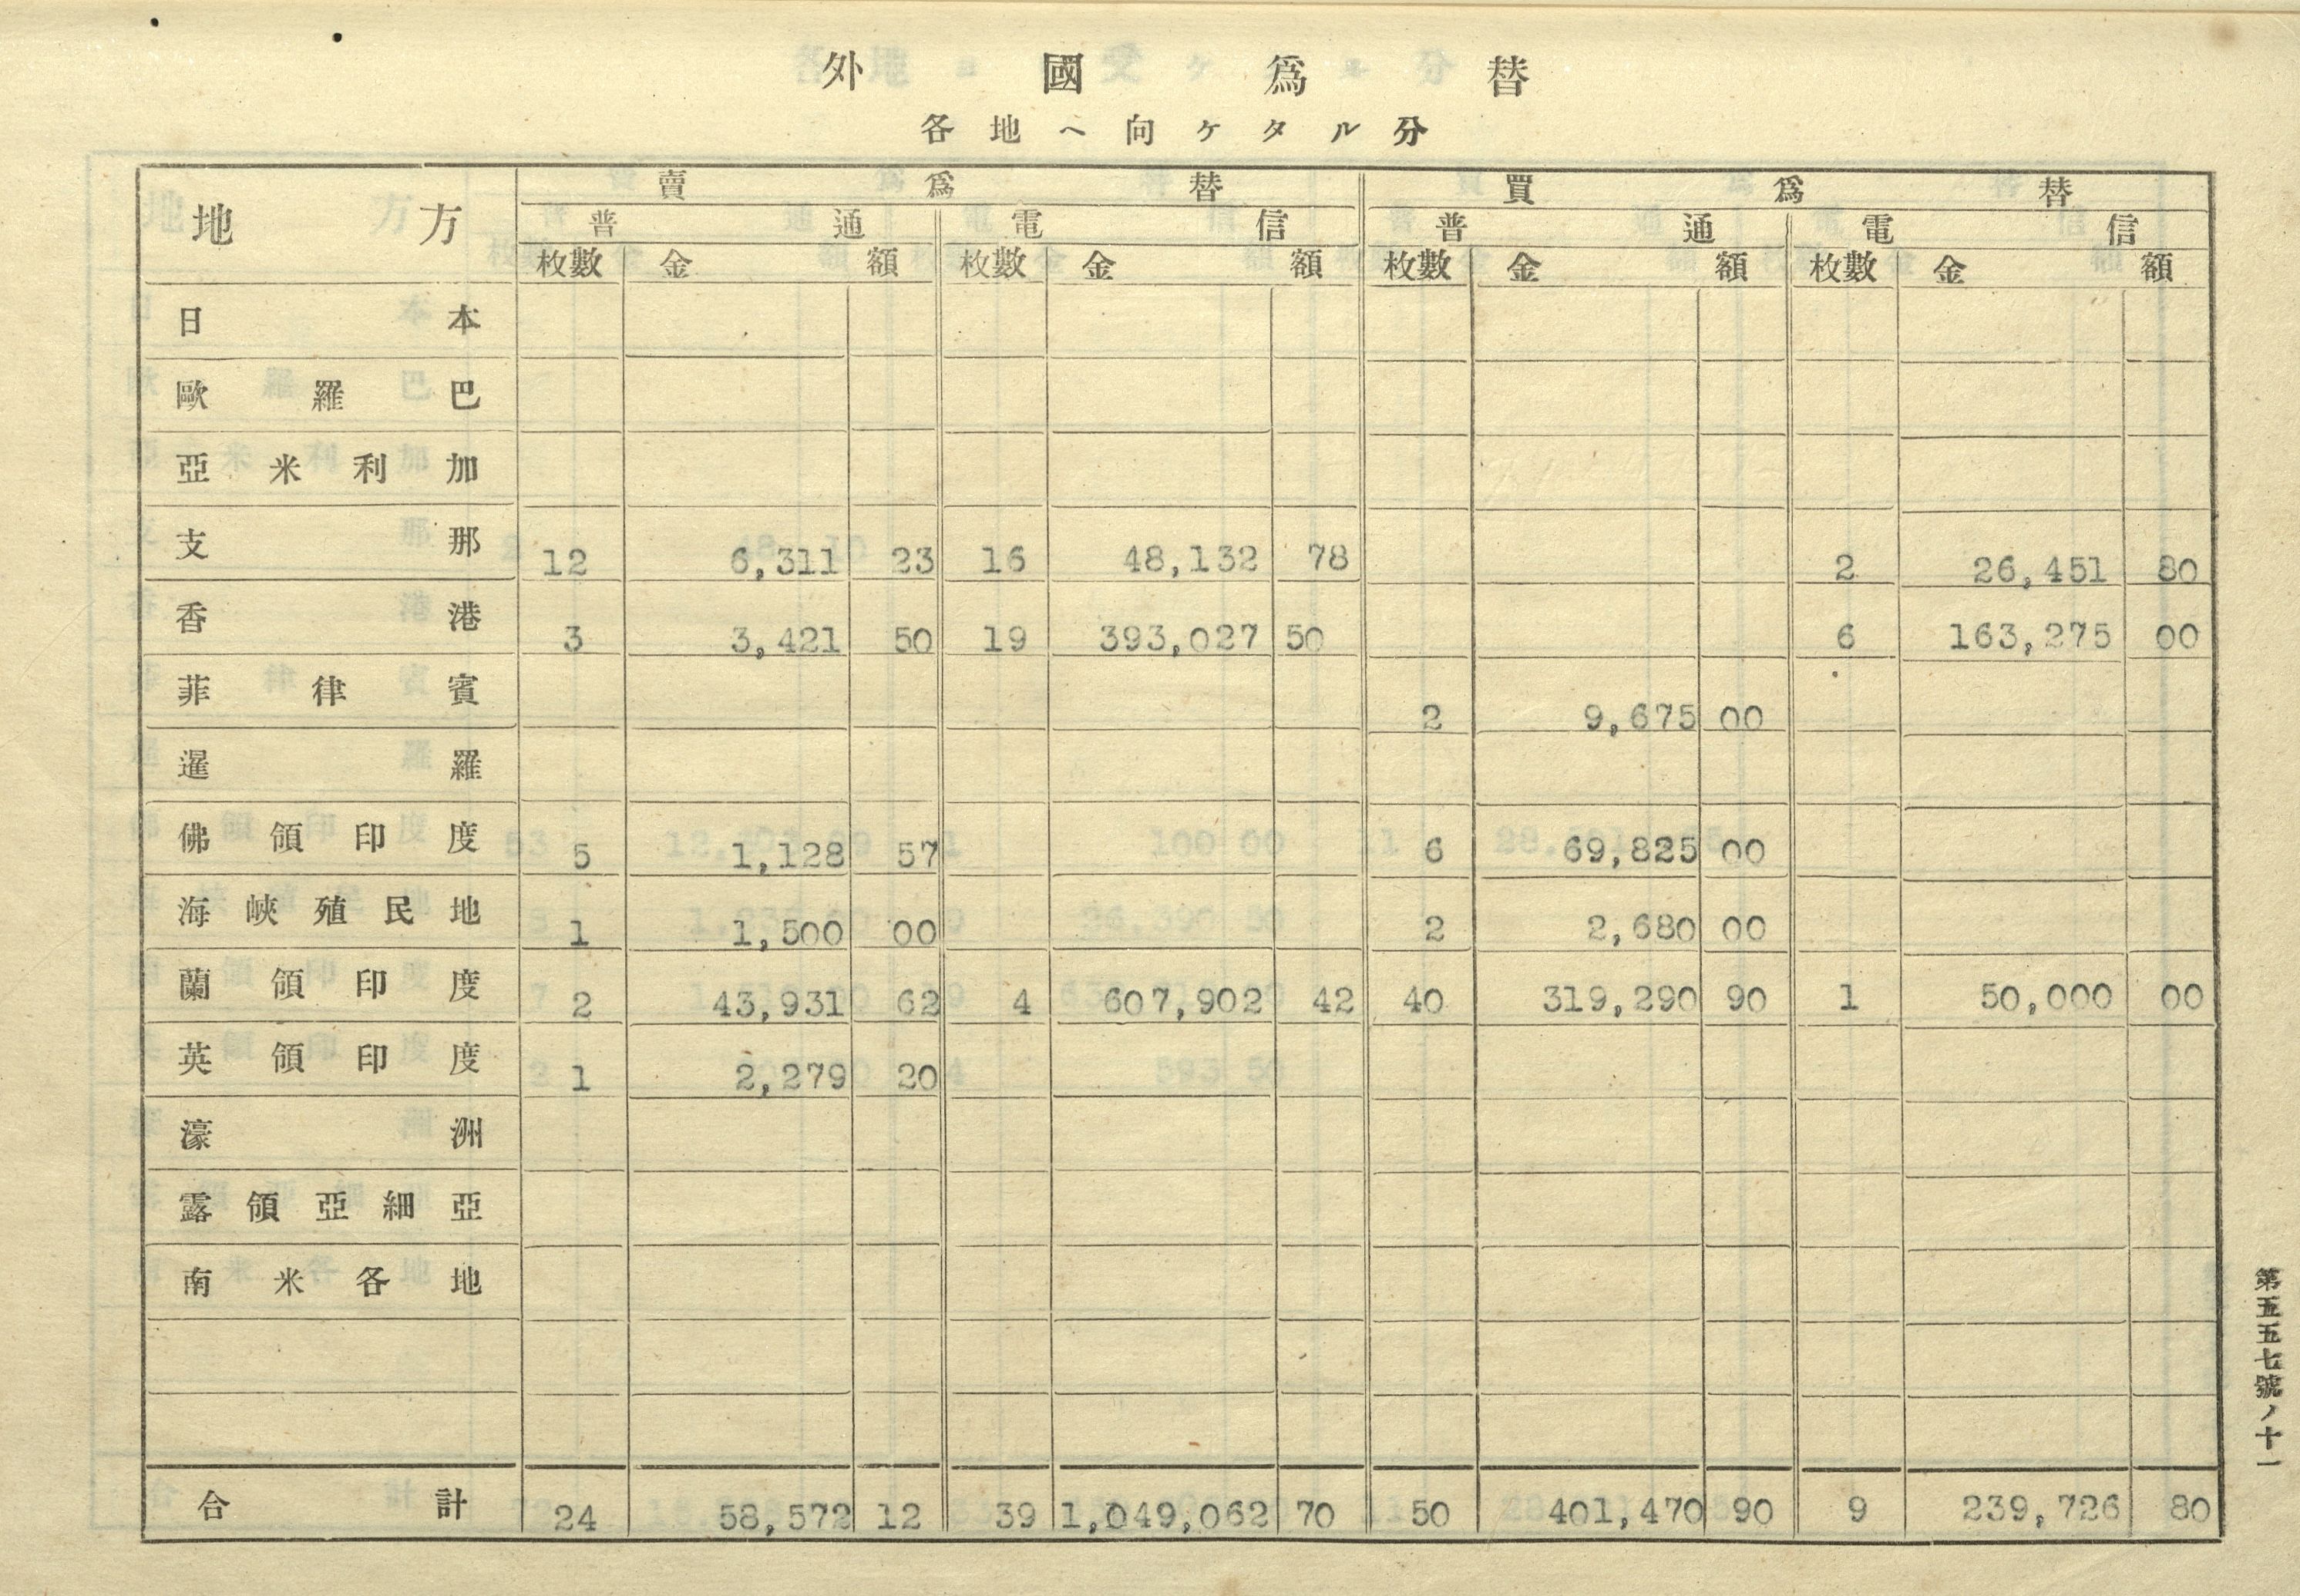 外國爲替
各地ヘ向ケタル分
地方 賣爲替 買爲替
普通 電信 普通 電信
枚數 金額 枚數 金額 枚數 金額 枚數 金額
日本
歐羅巴
亞米利加
支那 12 6,311 23 16 48,132 78 2 26,451 80
香港 3 3,421 50 19 393,027 50 6 163,275 00
菲律賓 2 9,675 00
暹羅
佛領印度 5 1,128 57 6 69,825 00
海峽殖民地 1 1,500 00 2 2,680 00
蘭領印度 2 43,931 62 4 607,902 42 40 319,290 90 1 50,000 00
英領印度 1 2,279 20
濠洲
露領亞細亞
南米各地
合計 24 58,572 12 39 1,049,062 70 50 401,470 90 9 239,726 80
第五五七號ノ十一